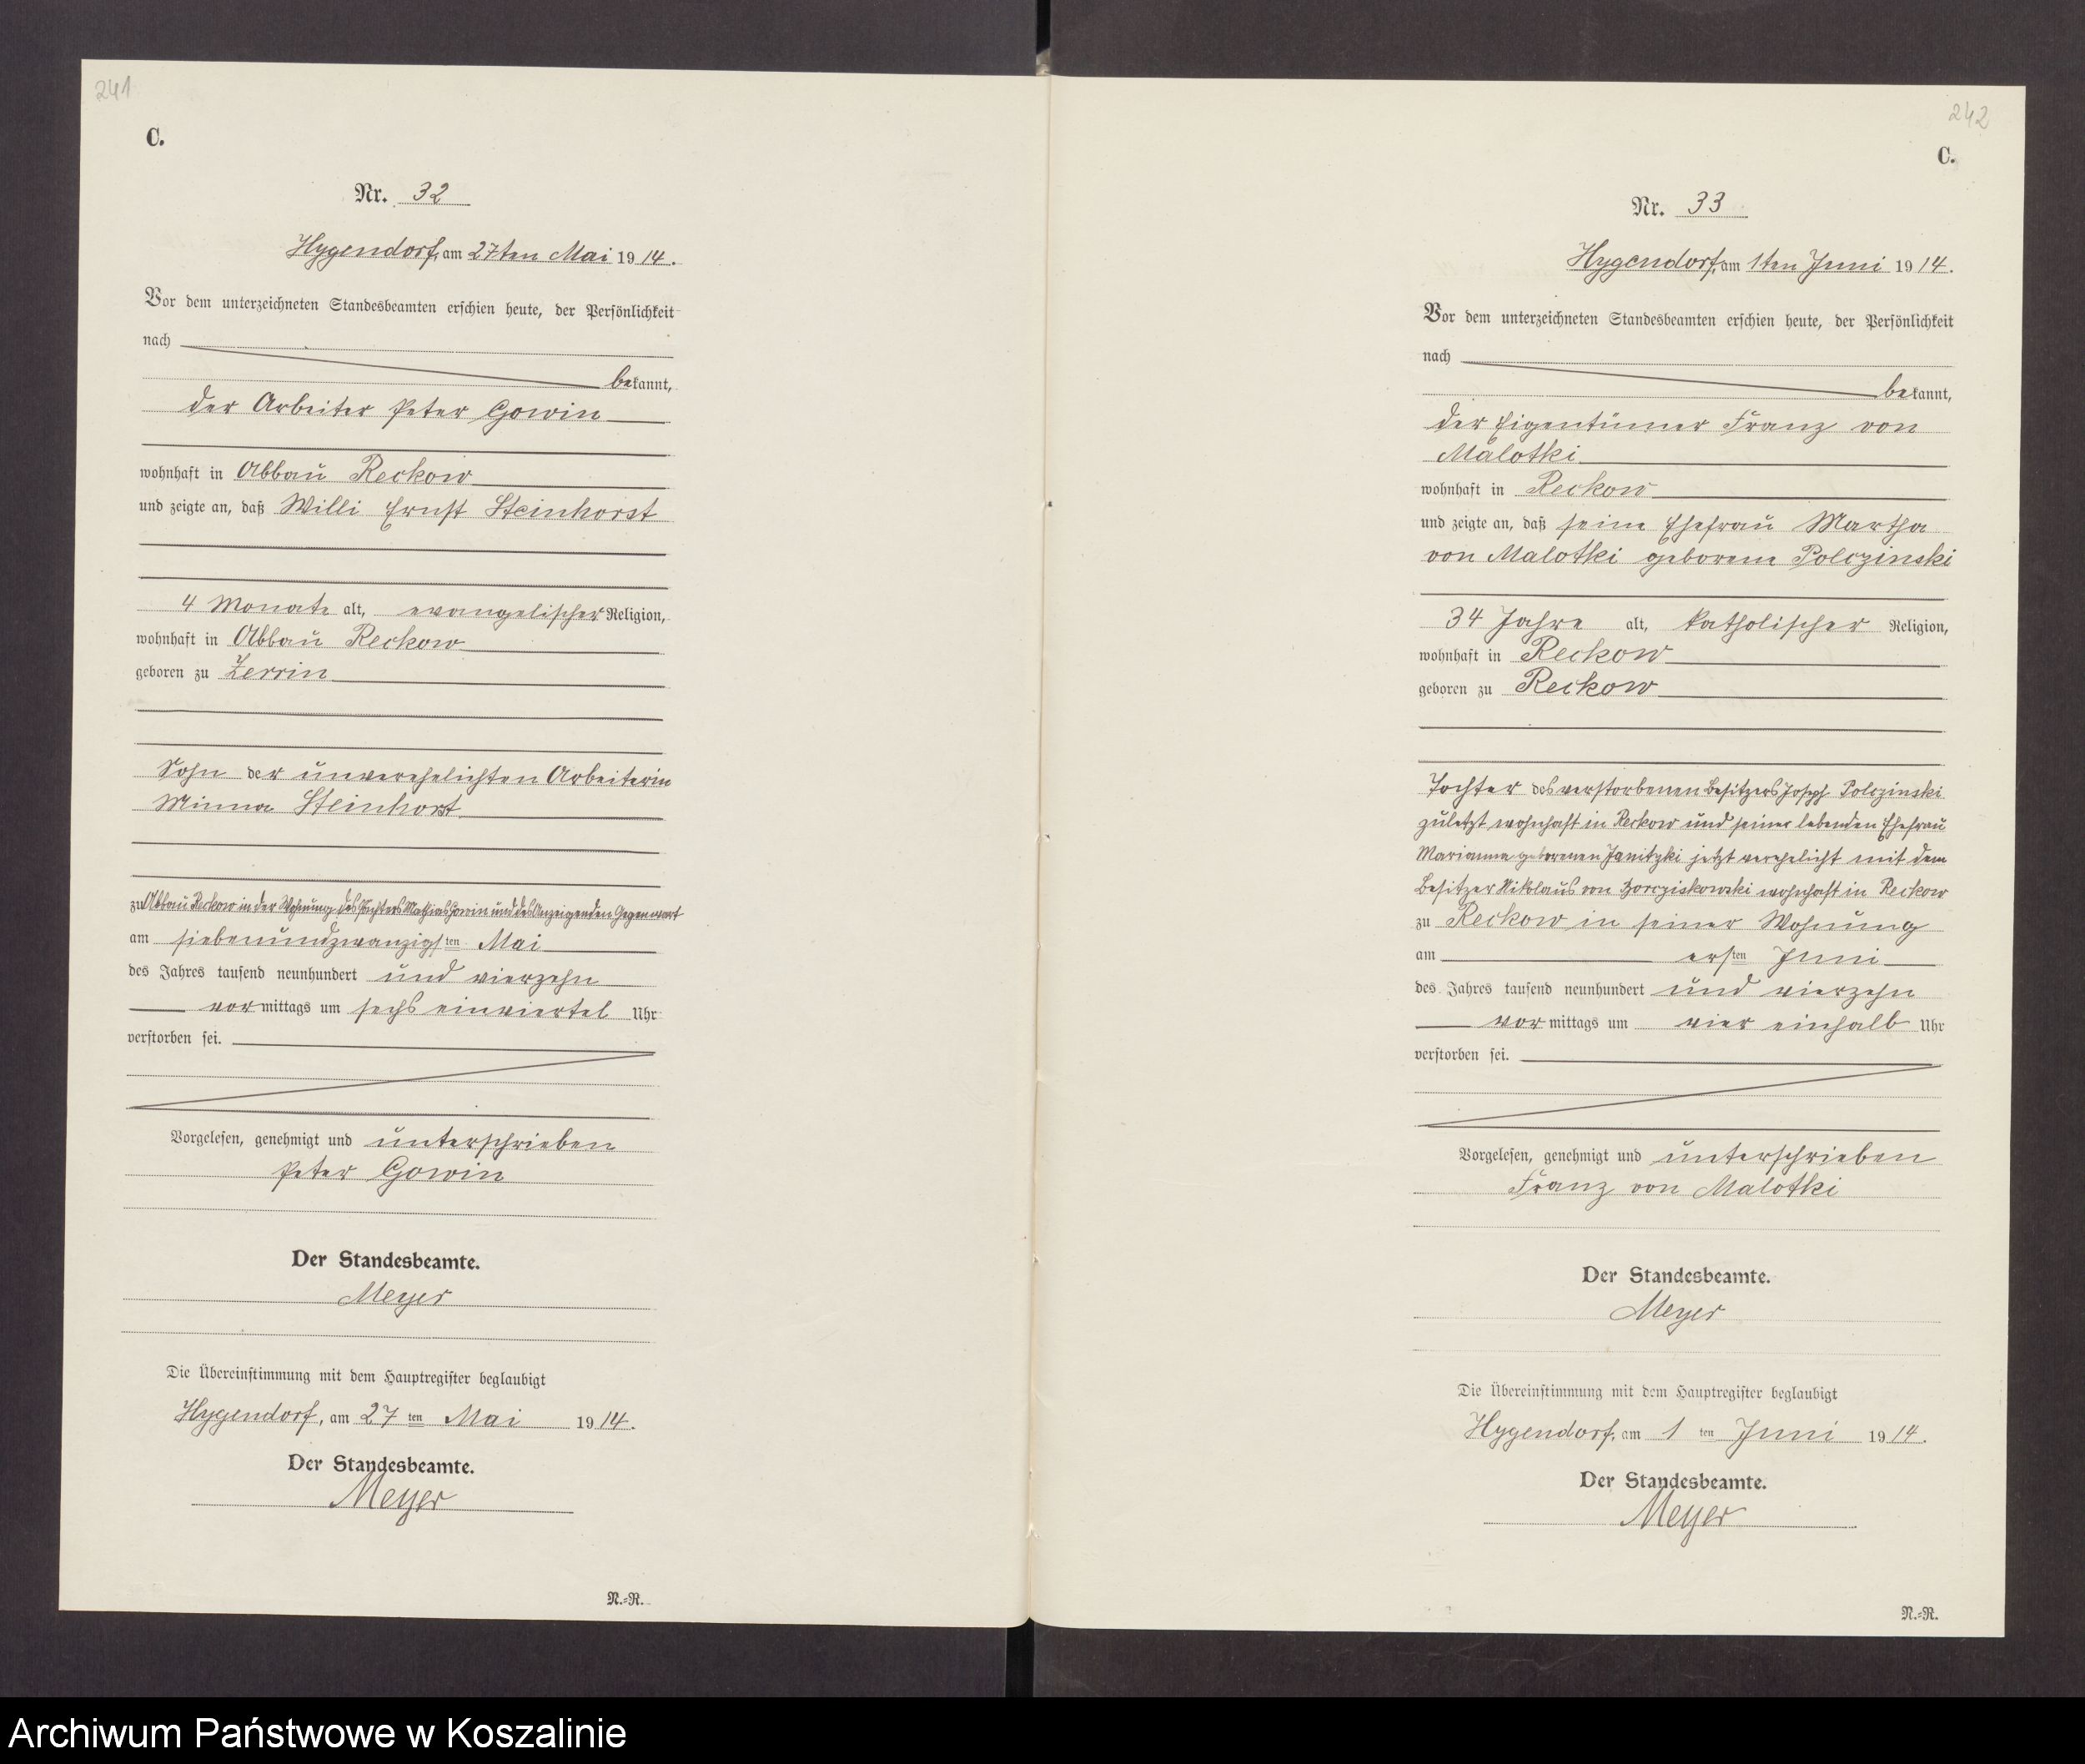 241
C.
Nr. 32
Hygendorf, am 27ten Mai 1914.
Vor dem unterzeichneten Standesbeamten erschien heute, der Persönlichkeit
nach
bekannt,
der Arbeiter Peter Gowin
wohnhaft in Abbau Reckow
und zeigte an, daß Willi Ernst Steinhorst
4 Monate alt, evangelischer Religion,
wohnhaft in Abbau Reckow
geboren zu Zerrin
Sohn der unverehelichten Arbeiterin
Minna Steinhorst
zu Abbau Reckow in der Wohnung des Pächters Mathias Gowin und des Anzeigenden Gegenwart
am siebenundzwanzigsten Mai
des Jahres tausend neunhundert und vierzehn
vormittags um sechs einviertel Uhr
verstorben sei.
Vorgelesen, genehmigt und unterschrieben
Peter Gowin
Der Standesbeamte.
Meyer
Die Übereinstimmung mit dem Hauptregister beglaubigt
Hygendorf, am 27ten Mai 1914.
Der Standesbeamte.
Meyer
N.-R.
242
C.
Nr. 33
Hygendorf, am 1ten Juni 1914.
Vor dem unterzeichneten Standesbeamten erschien heute, der Persönlichkeit
nach
bekannt,
der Eigentümer Franz von
Malotki
wohnhaft in Reckow
und zeigte an, daß seine Ehefrau Martha
von Malotki geborene Polczinski
34 Jahre alt, katholischer Religion,
wohnhaft in Reckow
geboren zu Reckow
Tochter des verstorbenen Besitzers Joseph Polczinski
zuletzt wohnhaft in Reckow und seiner lebenden Ehefrau
Marianna geborenen Janitzki jetzt verehelicht mit dem
Besitzer Nikolaus von Zorcziskowski wohnhaft in Reckow
zu Reckow in seiner Wohnung
am ersten Juni
des Jahres tausend neunhundert und vierzehn
vormittags um vier einhalb Uhr
verstorben sei.
Vorgelesen, genehmigt und unterschrieben
Franz von Malotki
Der Standesbeamte.
Meyer
Die Übereinstimmung mit dem Hauptregister beglaubigt
Hygendorf, am 1ten Juni 1914.
Der Standesbeamte.
Meyer
N.-R.
Archiwum Państwowe w Koszalinie